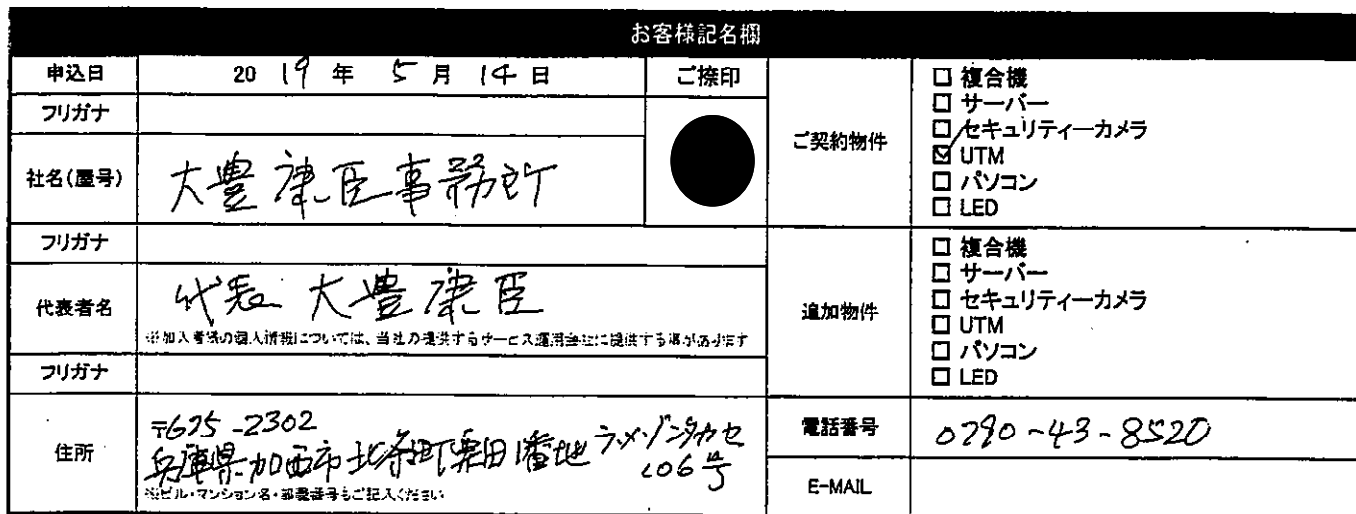 お客様記名欄
申込日 2019年 5月 14日 ご捺印
フリガナ
社名(屋号) 大豊康臣事務所
フリガナ
代表者名 代表 大豊康臣
※加入者様の個人情報については、当社の提供するサービス運用会社に提供する事があります
フリガナ
住所 〒675-2302
兵庫県加西市北条町栗田1番地 ラメゾンタカセ
106号
※ビル・マンション名・部屋番号もご記入ください
ご契約物件
□ 複合機
□ サーバー
□ セキュリティーカメラ
☑ UTM
□ パソコン
□ LED
追加物件
□ 複合機
□ サーバー
□ セキュリティーカメラ
□ UTM
□ パソコン
□ LED
電話番号 0790-43-8520
E-MAIL